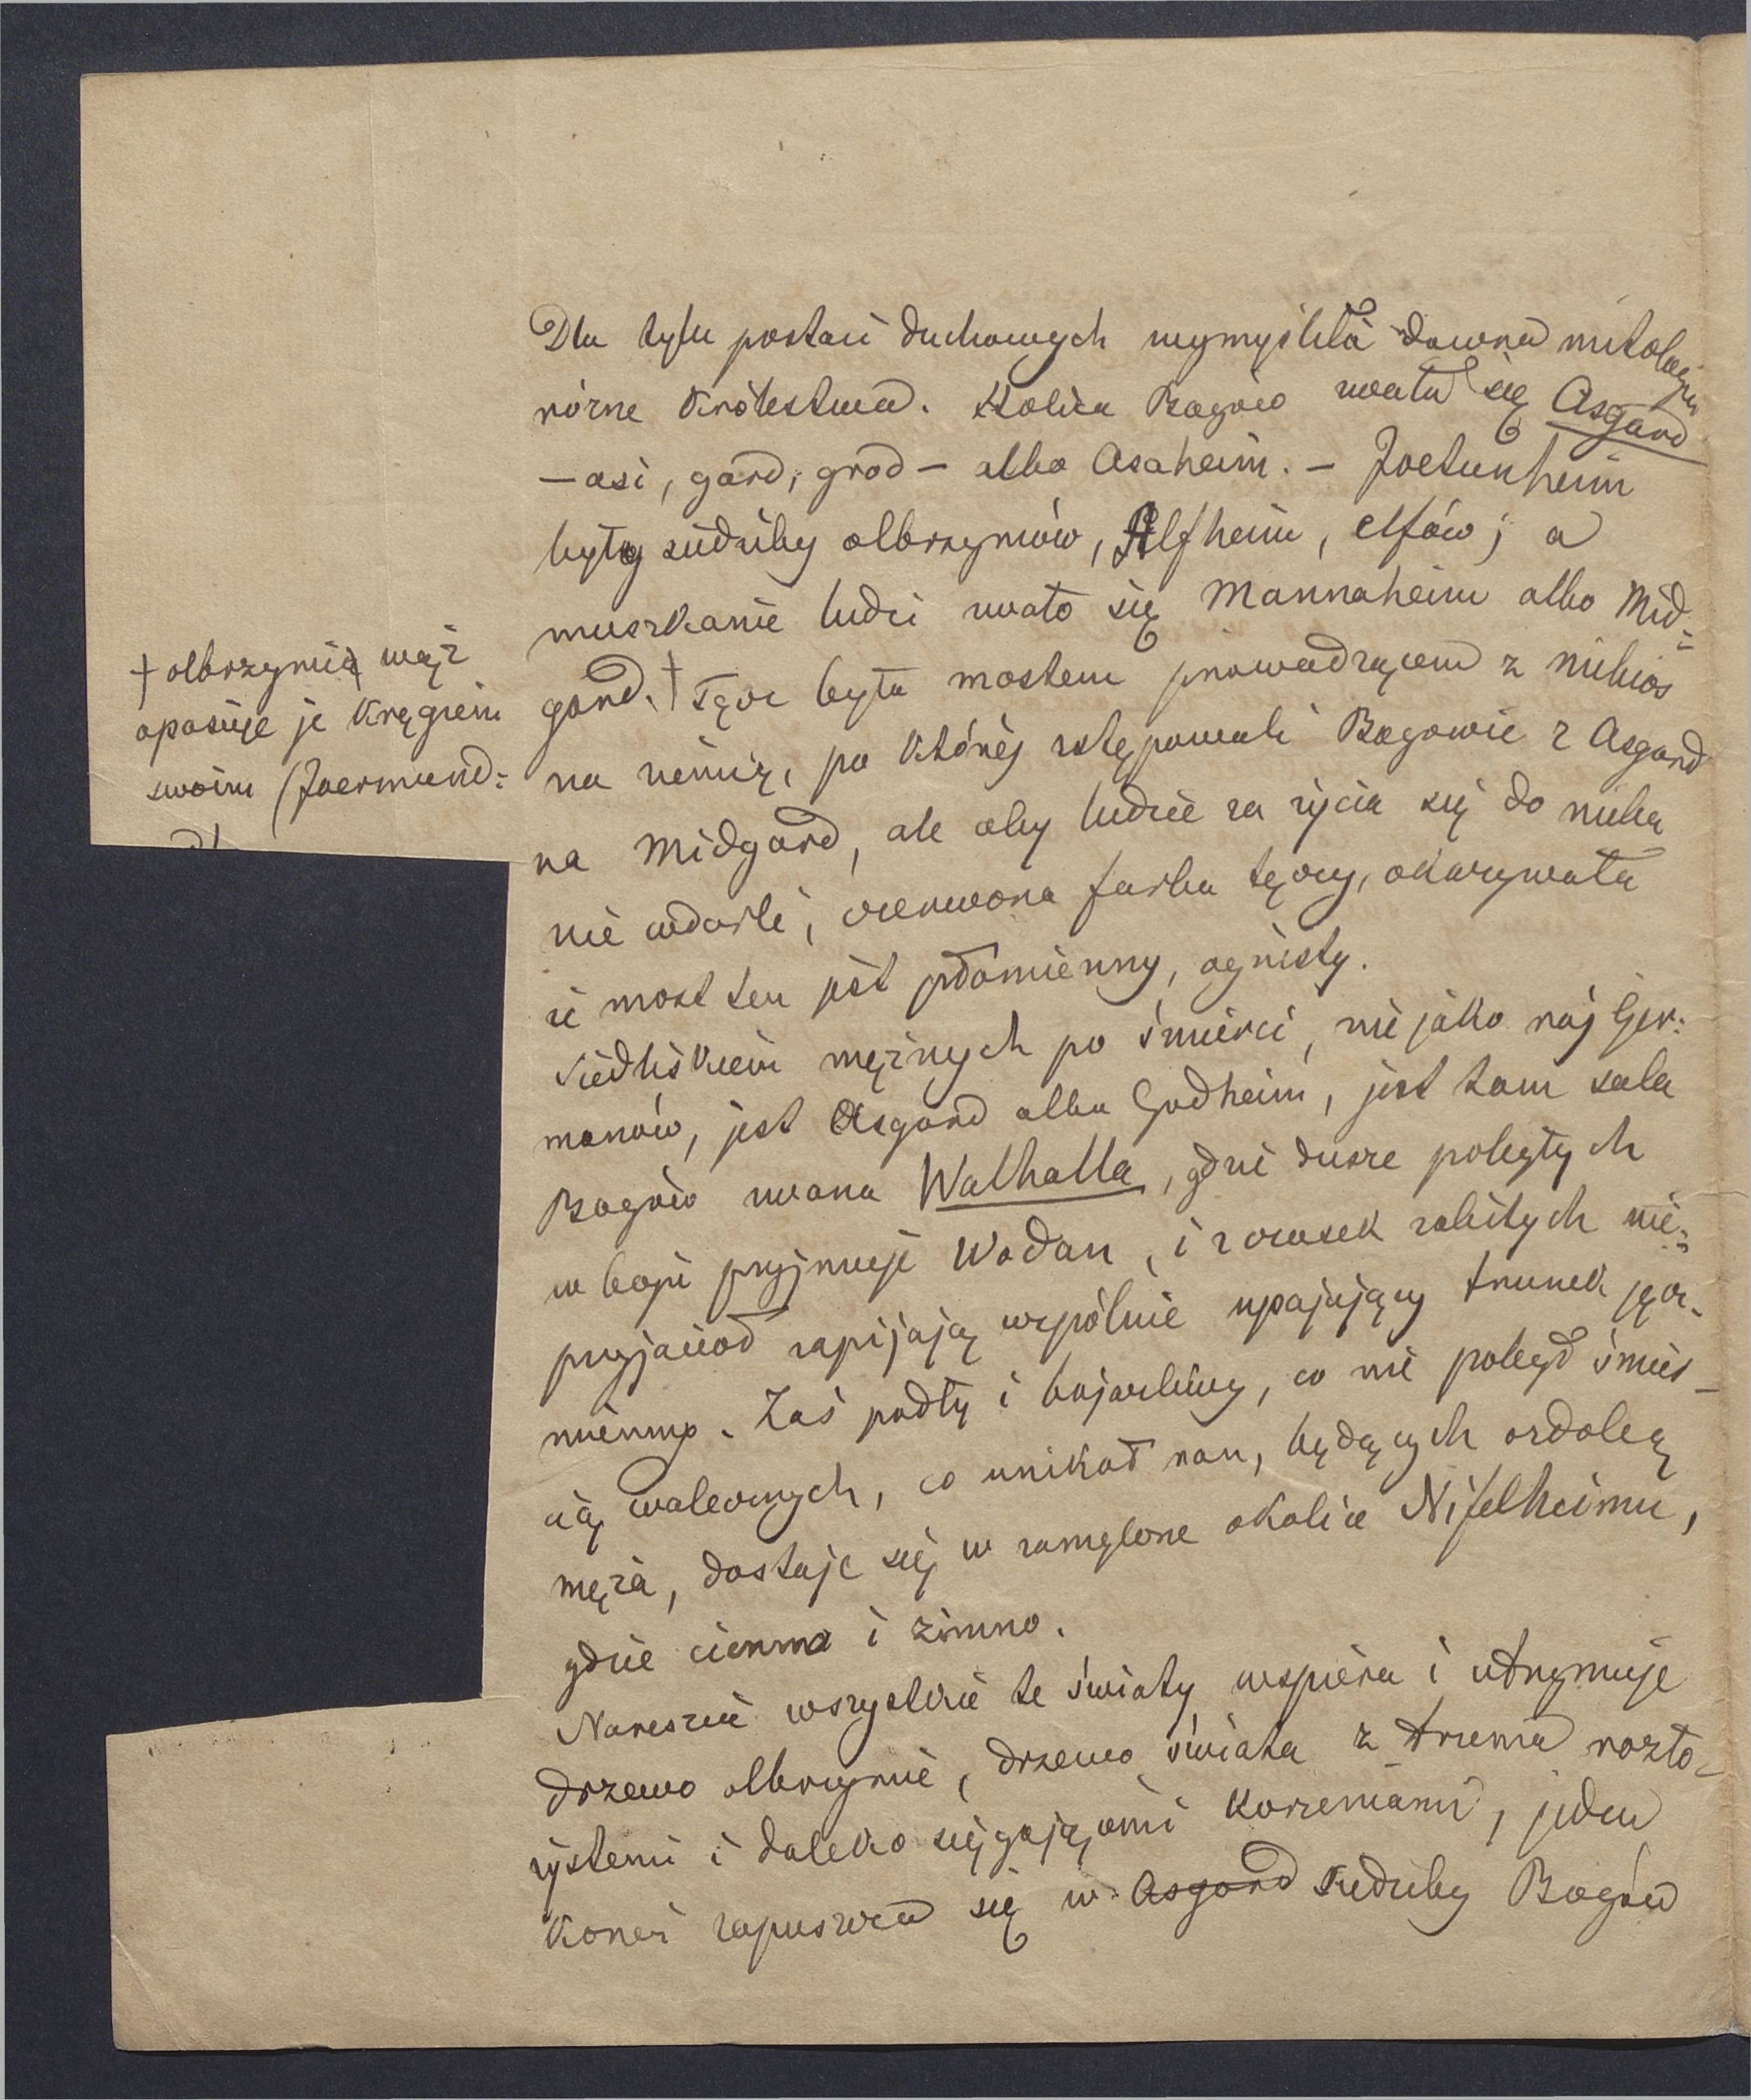 Dla tylu postaci duchowych wymyśliła dawna mitologja
różne Królestwa. Stolica Bogów zwała się Asgard
— asi, gard, grod — albo Asaheim. — Joetunheim
były siedziby olbrzymów, Alfheim, elfów; a
mieszkanie ludzi zwało się Mannaheim albo Mid=
gard. † Tęcza była mostem prowadzącem z niebios
na ziemię, po której zstępowali Bogowie z Asgard
na Midgard, ale aby ludzie za życia się do nieba
nie wdarli, czerwona farba tęczy, okazywała
iż most ten jest płomienny, ognisty.
Siedliskiem mężnych po śmierci, niejako raj Ger=
manów, jest Asgard albo Godheim, jest tam sala
Bogów zwana Walhalla, gdzie dusze poległych
w boju przyjmuje Wodan, i z czaszek zabitych nie=
przyjaciół zapijają wspólnie upajający trunek jęcz-
mienny. Zaś podły i bojaźliwy, co nie poległ śmier-
cią walecznych, co unikał ran, będących ozdobą
męża, dostaje się w zamglone okolice Nifelheimu,
gdzie ciemno i zimno.
Nareszcie wszystkie te światy wspiera i utrzymuje
drzewo olbrzymie, drzewo świata z trzema rozło-
żystemi i daleko sięgającemi korzeniami, jeden
korzeń zapuszcza się w Asgard siedziby Bogów
† olbrzymi wąż
opasuje je kręgiem
swoim (Joermund=